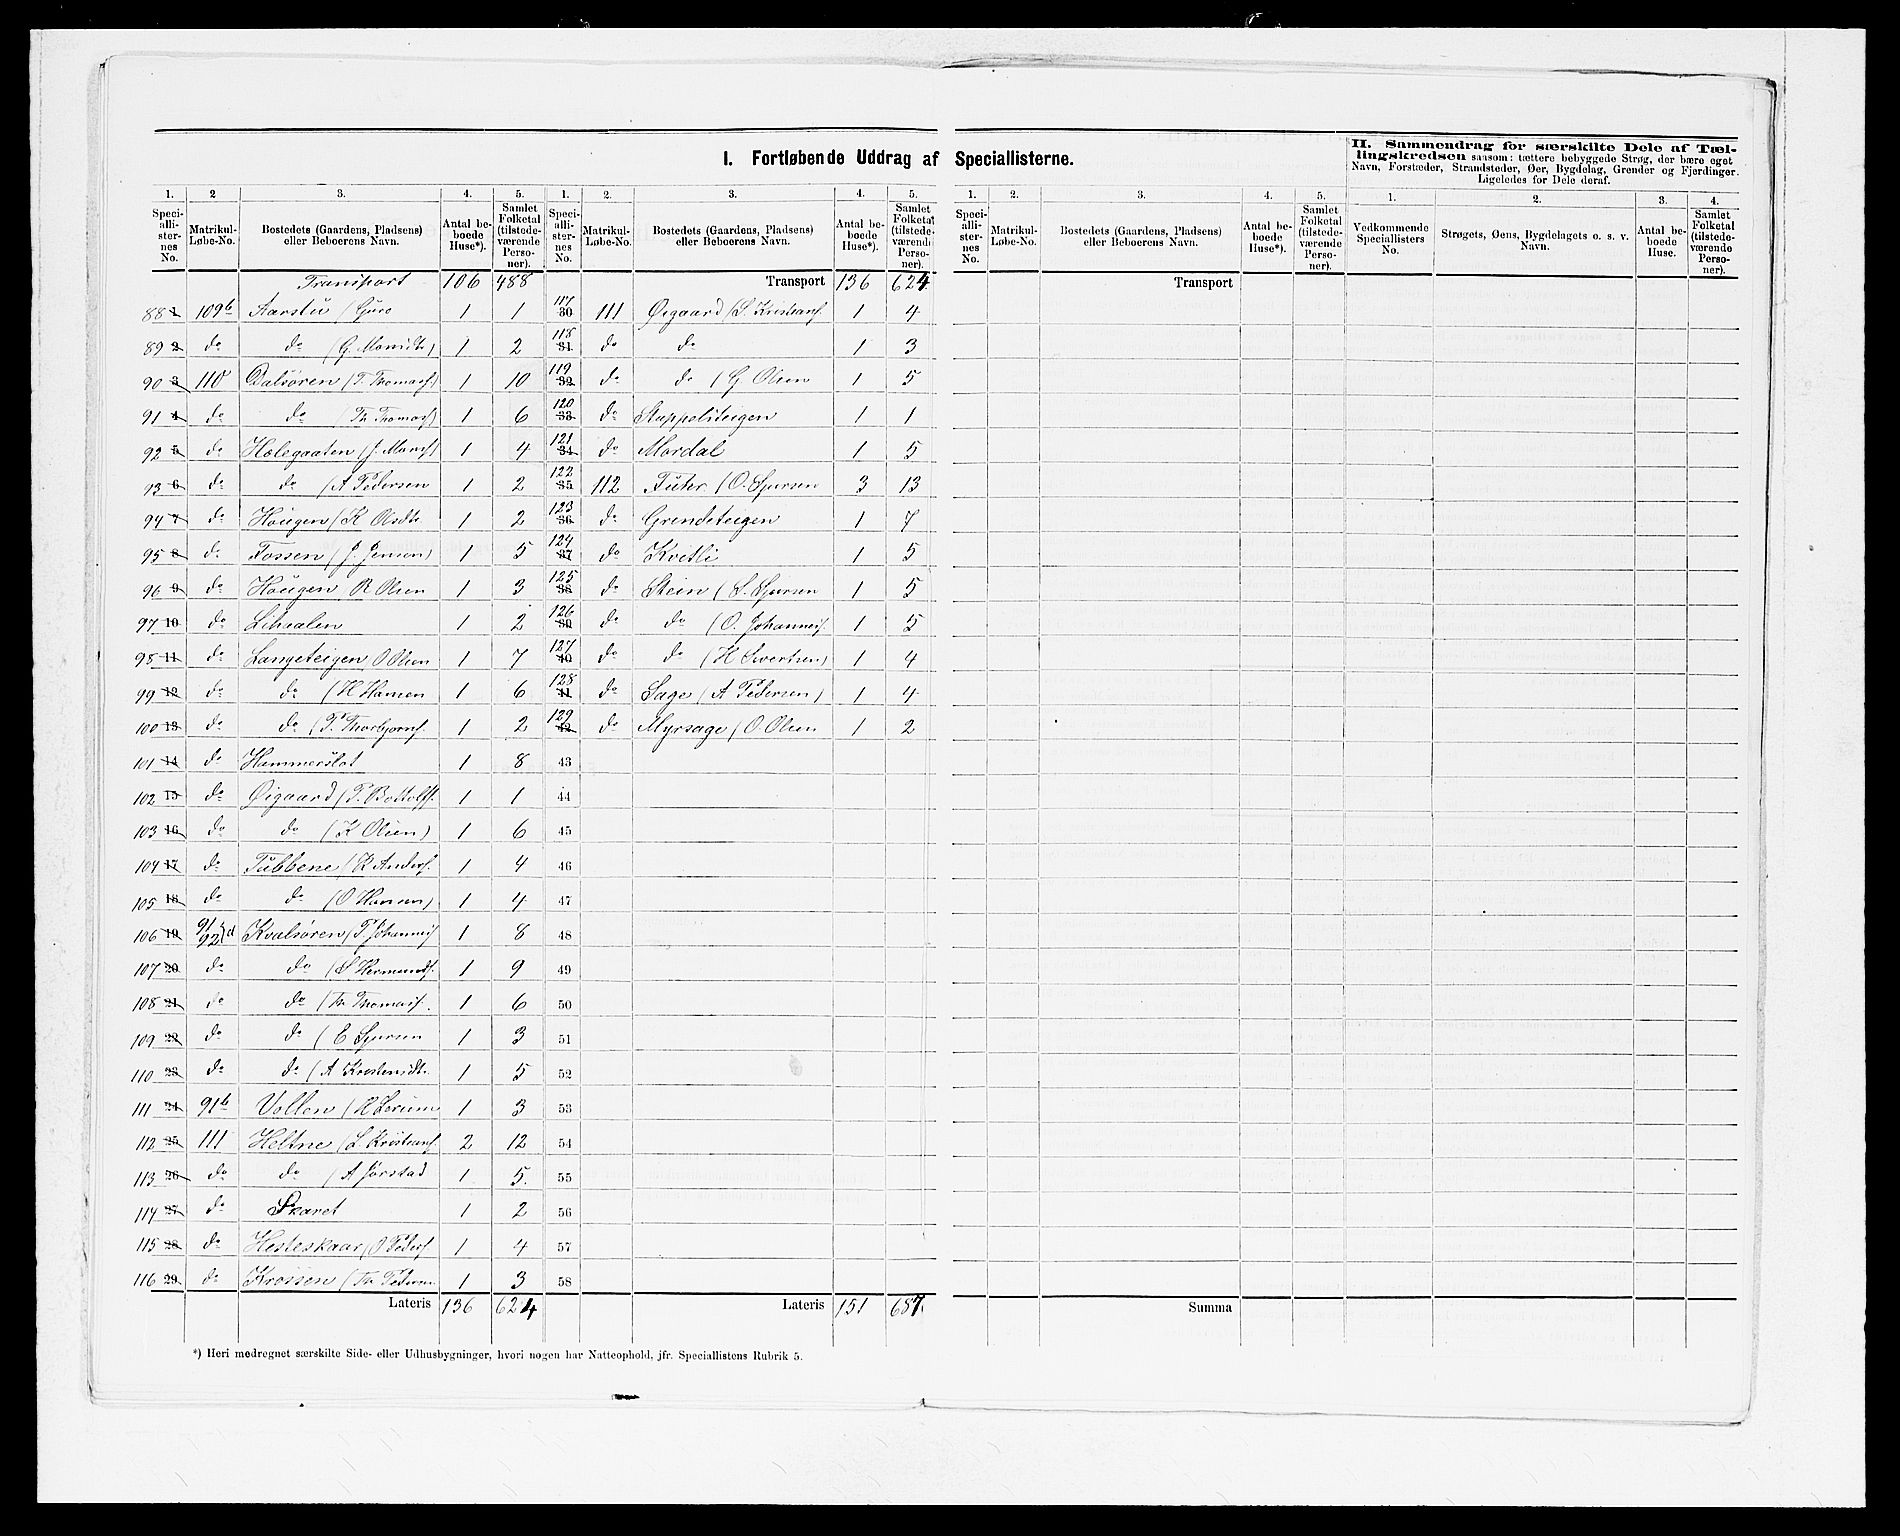 I. Fortløbende Uddrag af Speciallisterne.
II. Sammendrag for særskilte Dele af Tællingskredsen saasom: tættere bebyggede Strøg, der bære eget Navn, Forstæder, Strandsteder, Øer, Bygdelag, Grender og Fjerdinger. Ligeledes for Dele deraf.
1. 2 3. 4. 5. 1. 2. 3. 4. 5. 1. 2. 3. 4. 5. 1. 2. 3. 4.
Speciallisternes No. Matrikul-Løbe-No. Bostedets (Gaardens, Pladsens) eller Beboerens Navn. Antal beboede Huse*). Samlet Folketal (tilstedeværende Personer).
Speciallisternes No. Matrikul-Løbe-No. Bostedets (Gaardens, Pladsens) eller Beboerens Navn. Antal beboede Huse*). Samlet Folketal (tilstedeværende Personer).
Speciallisternes No. Matrikul-Løbe-No. Bostedets (Gaardens, Pladsens) eller Beboerens Navn. Antal beboede Huse*). Samlet Folketal (tilstedeværende Personer).
Vedkommende Speciallisters No. Strøgets, Øens, Bygdelagets o. s. v. Navn. Antal beboede Huse. Samlet Folketal (tilstedeværende Personer).
Transport 106 488
88 1 109b Aarstu (Guro 1 1
89 2 do do (G. Monsdtr) 1 2
90 3 110 Dalsøren (T. Thomass) 1 10
91 4 do do (Th Thomass) 1 6
92 5 do Holegaaten (J. Monss) 1 4
93 6 do do (A Pedersen 1 2
94 7 do Hougen (K Olsdtr 1 2
95 8 do Fossen (J. Jensen) 1 5
96 9 do Hougen R Olsen 1 3
97 10 do Lihealen 1 2
98 11 do Langeteigen O Olsen 1 7
99 12 do do (H Hansen 1 6
100 13 do do (T. Thorbjørns. 1 2
101 14 do Hammerslot 1 8
102 15 do Øigaard (T. Bottolfs. 1 1
103 16 do do (K Olsen) 1 6
104 17 do Tubbene (K Anders. 1 4
105 18 do do (O Hansen) 1 4
106 19 91/92 d Kvalsøren (P Johannes 1 8
107 20 do do (S Hermunds. 1 9
108 21 do do (Th Thomass. 1 6
109 22 do do (E Sjursen 1 3
110 23 do do (A Kristensdtr. 1 5
111 24 91b Vollen (H Lerum 1 3
112 25 111 Heltne (L. Kristians. 2 12
113 26 do do (A Jørstad 1 5.
114 27 do Skaret 1 2
115 28 do Hesteskaar (O Peders 1 4
116 29 do Krossen (Th Pedersen 1 3
Lateris 136 624
Transport 136 624
117 30 111 Øigaard (S. Kristians. 1 4
118 31 do do 1 3
119 32 do do (G Olsen 1 5
120 33 do Stuppeliteigen 1 1
121 34 do Mordal 1 5
122 35 112 Fuhr (O. Sjursen 3 13
123 36 do Grendeteigen 1 7
124 37 do Kvitli 1 5
125 38 do Stein (S. Sjursen 1 5
126 39 do do (O. Johannes. 1 5
127 40 do do (H Sivertsen) 1 4
128 41 do Sage (A Pedersen) 1 4
129 42 do Myrsage (O Olsen 1 2
43
44
45
46
47
48
49
50
51
52
53
54
55
56
57
58
Lateris 151 687.
Transport
Summa
*) Heri medregnet særskilte Side- eller Udhusbygninger, hvori nogen har Natteophold, jfr. Speciallistens Rubrik 5.